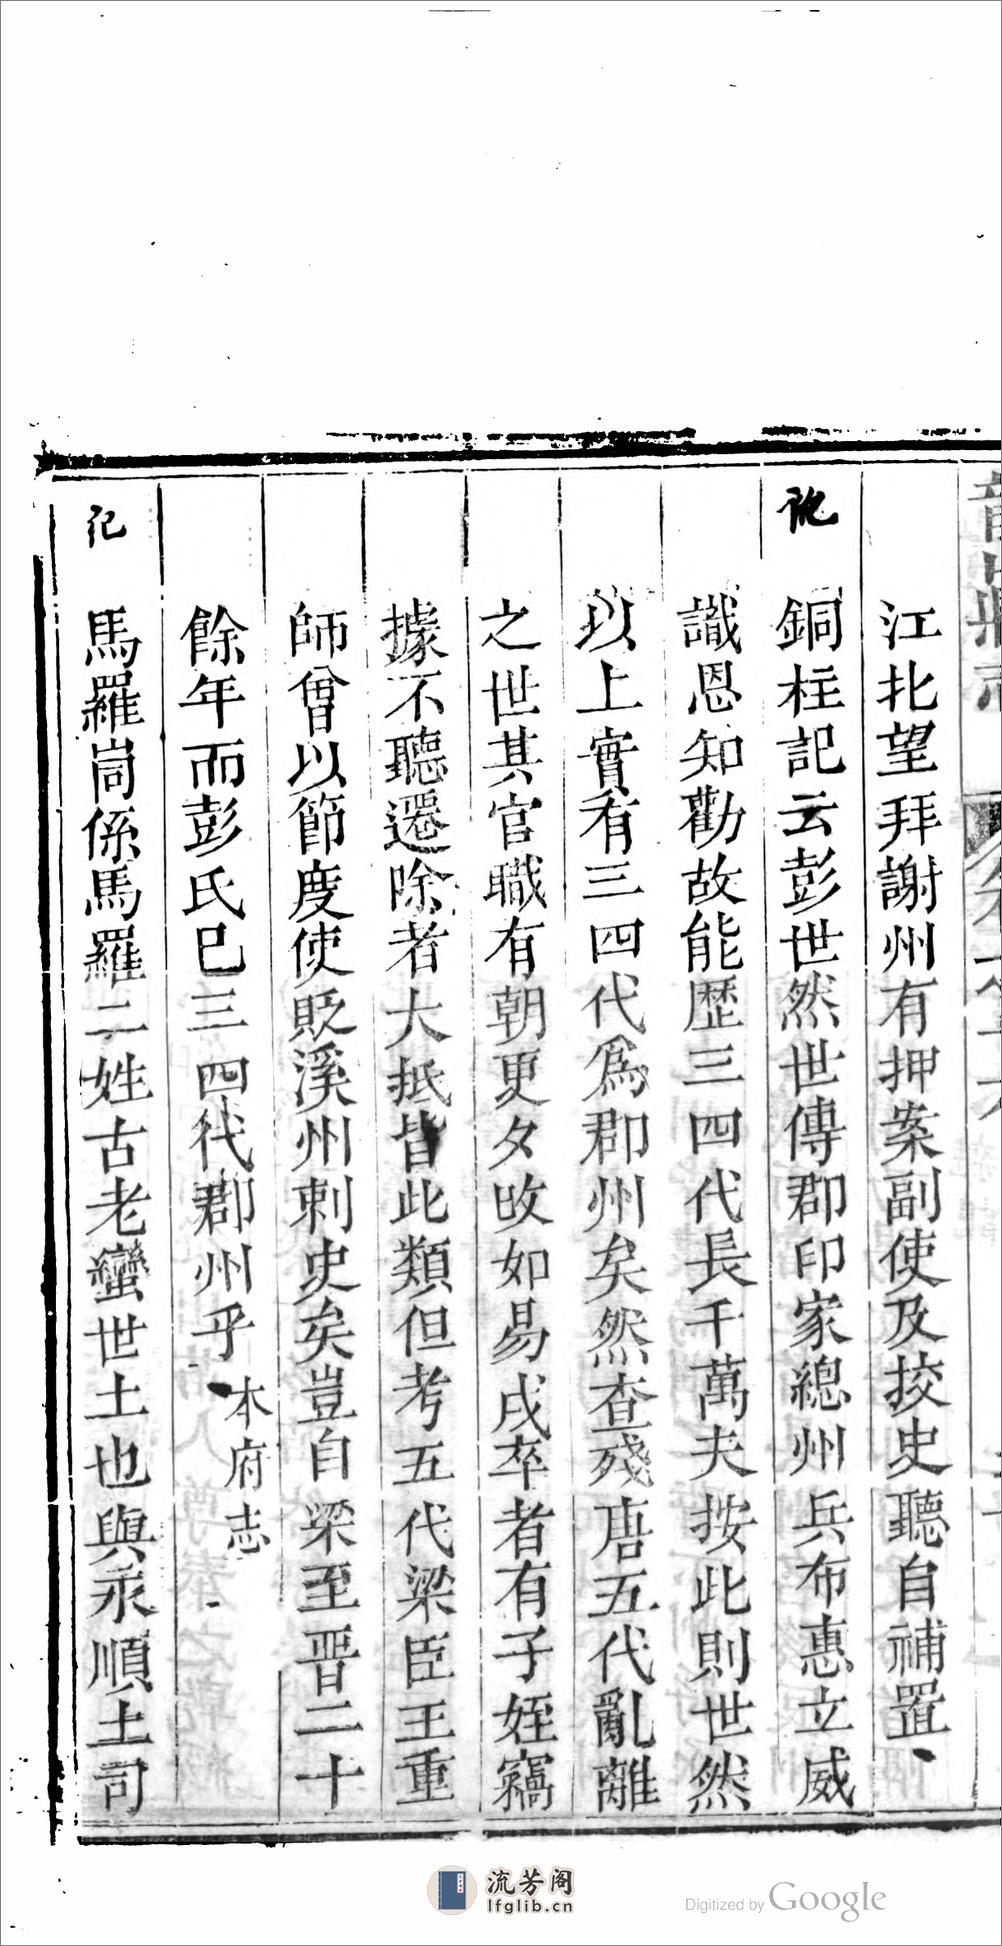 江北望拜謝州有押案副使及挍史聽自補置
銅柱記云彭世然世傳郡印家總州兵布惠立威
識恩知勸故能歷三四代長千萬夫按此則世然
以上實有三四代爲郡州矣然查殘唐五代亂離
之世其官職有朝更夕改如易戍卒者有子姪竊
據不聽遷除者大抵皆此類但考五代梁臣王重
師曾以節度使貶溪州刺史矣豈自梁至晋二十
餘年而彭氏巳三四代郡州乎 本府志
記 馬羅峝係馬羅二姓古老蠻世土也與永順土司
流芳阁
lfglib.cn
Digitized by Google